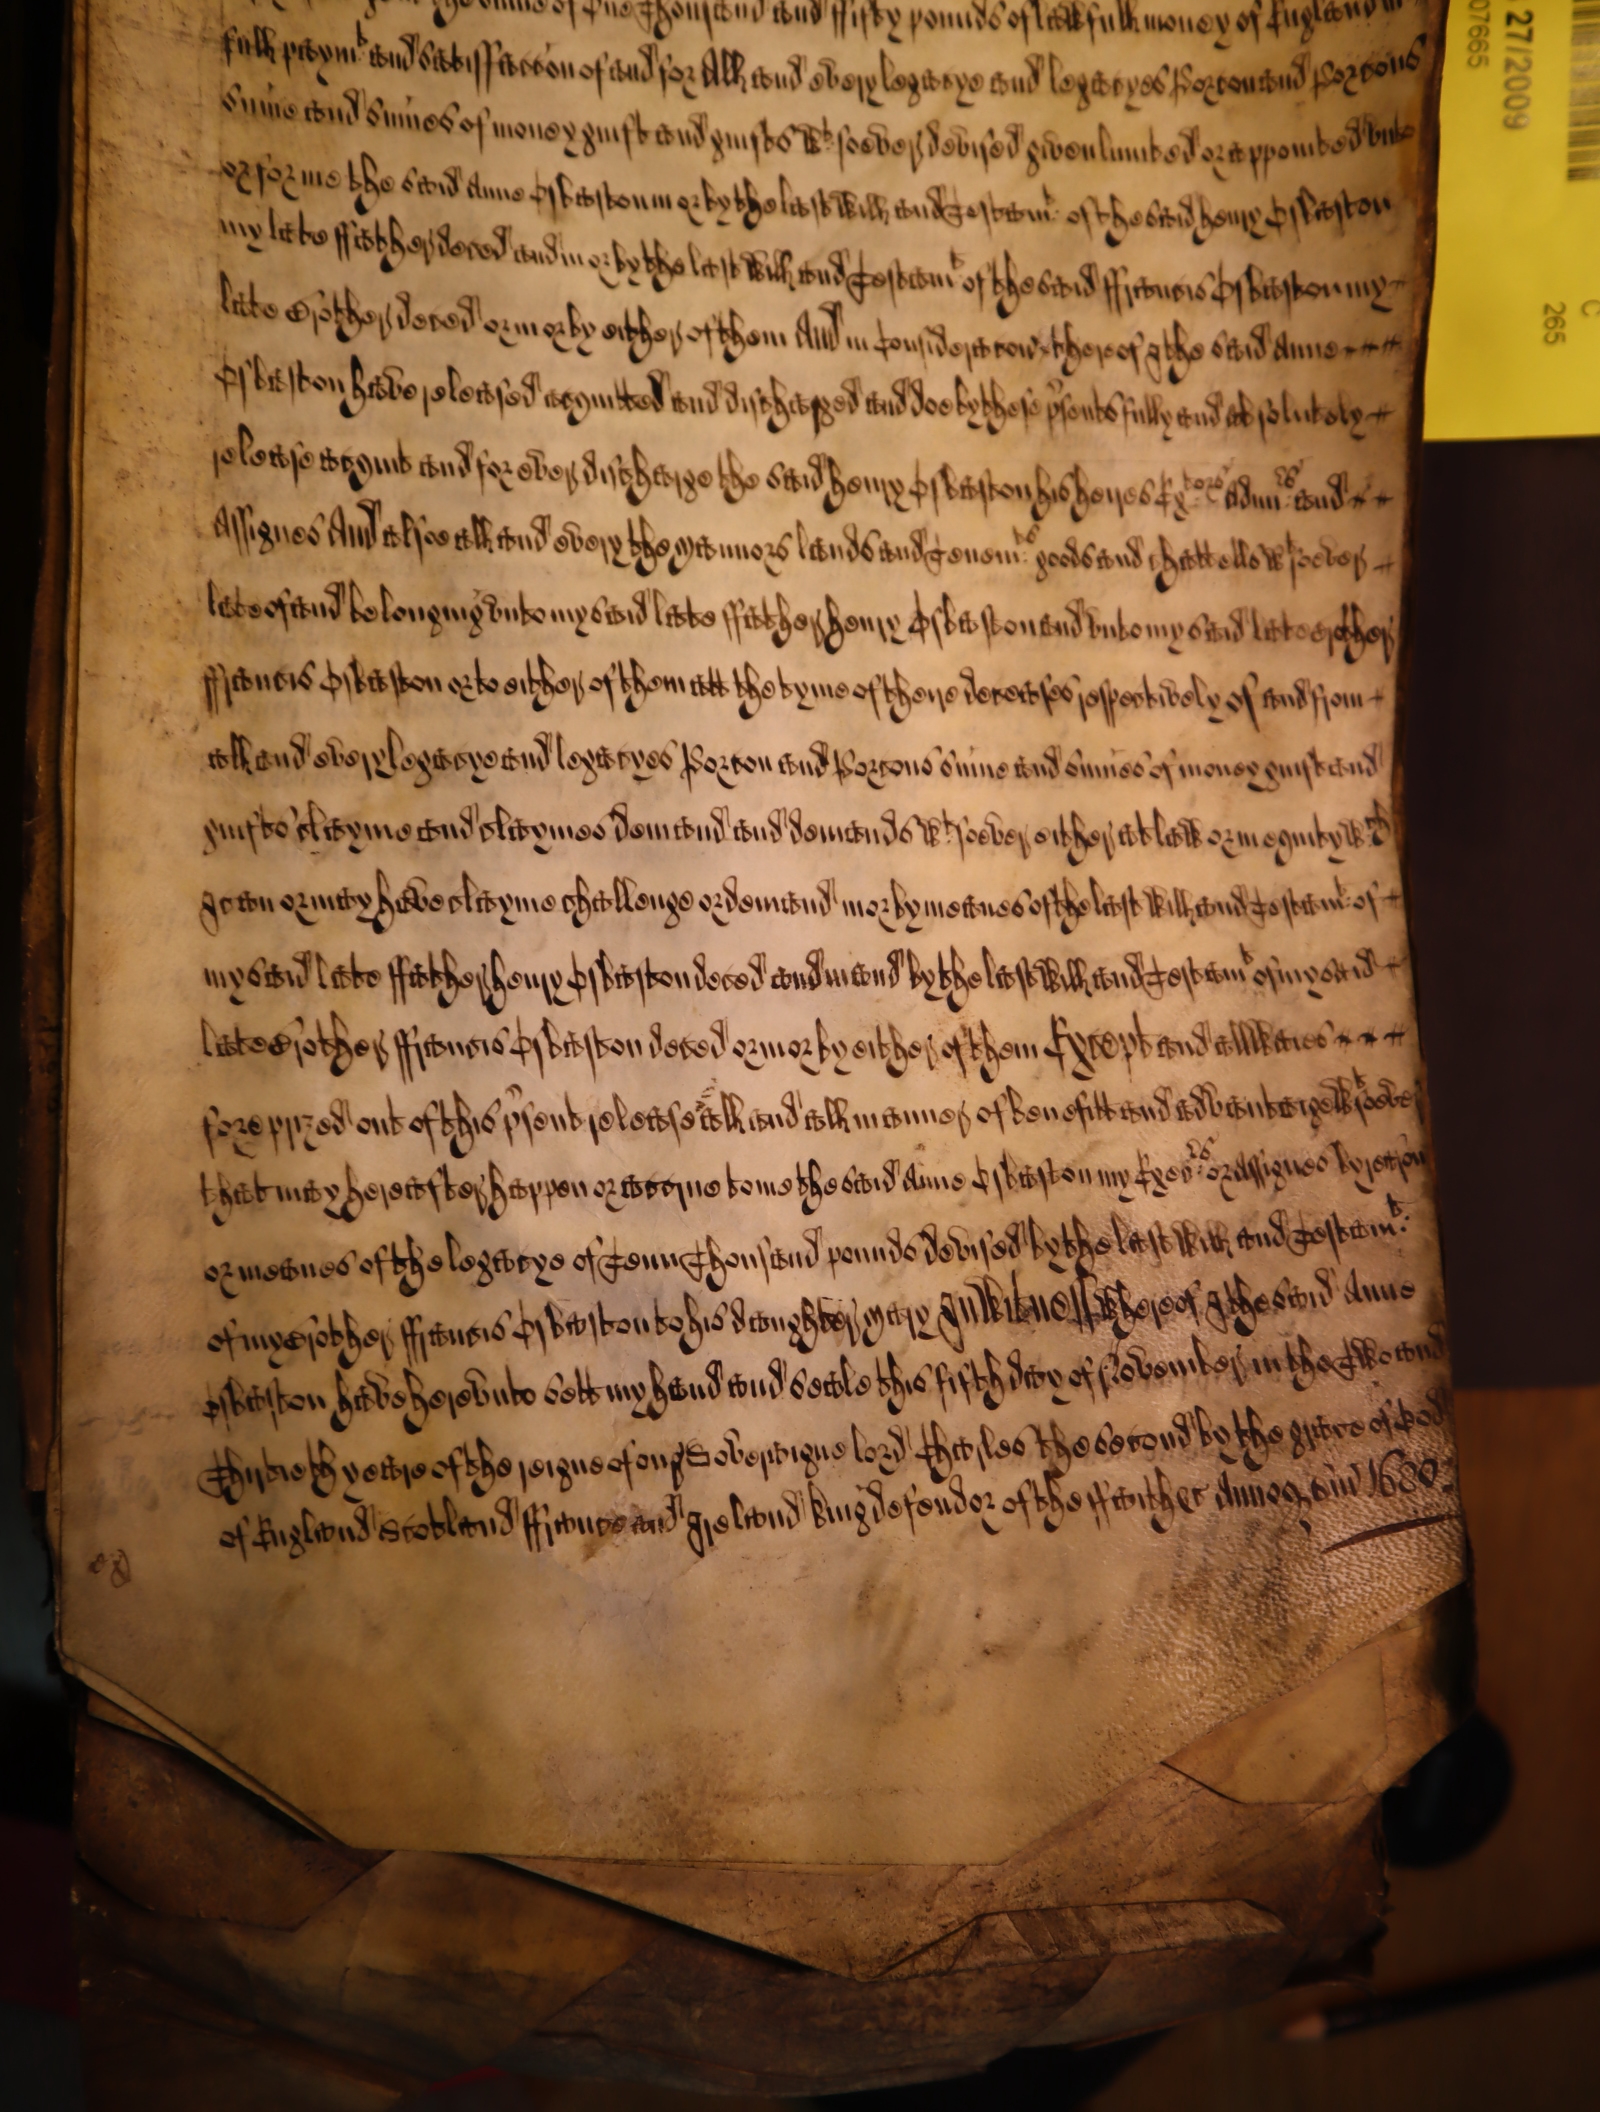 the summe of One Thousand and ffifty pounds of lawfull money of England in
full paym.t and satisffaccon of and for All and every legacye and legacyes Porcon and Porcons
Sume and Sumes of money guift and guifts w.t soever devised given limited or appointed unto
or for me the said Anne Osbaston in or by the last Will and Testam.t of the said henry Osbaston
my late ffather deced and in or by the last Will and Testam.t of the said ffrancis Osbaston my
late Brother deced or in or by either of them And in Consideracon thereof I the said Anne
Osbaston have released acquitted and discharged and doe by these p'sents fully and absolutely
release acquit and for ever discharge the said henry Osbaston his heires Ex.tors Admi.rs and
Assignes And alsoe all and every the Mannors lands and Tenem.ts goods and chattells w.t soever
late of and belonging unto my said late ffather henry Osbaston and unto my said late Brother
ffrancis Osbaston or to either of them att the tyme of there deceases respectively of and from
all and every legacye and legacyes Porcon and Porcons Sume and Sumes of money guift and
guifts clayme and claymes demand and demands w.t soever either at law or in equity w.ch
I can or may have clayme challenge or demand in or by meanes of the last Will and Testam.t of
my said late ffather henry Osbaston deced and in and by the last Will and Testam.t of my said
late Brother ffrancis Osbaston deced or in or by either of them Except and allwaies
foreprized out of this p'sent release all and all manner of benefitt and advantage w.t soever
that may hereafter happen or accrue to me the said Anne Osbaston my Exec.rs or Assignes by reason
or meanes of the legacye of Tenn Thousand pounds devised by the last Will and Testam.t
of my Brother ffrancis Osbaston to his daughter Mary In Witnesse Whereof I the said Anne
Osbaston have hereunto sett my hand and Seale this fifth day of November in the Two and
Thirtieth yeare of the reigne of our Soveraigne lord Charles the second by the grace of God
of England Scotland ffrance and Ireland King defendor of the ffaith &c Annoq Dni 1680
27/2009
07665
265
C